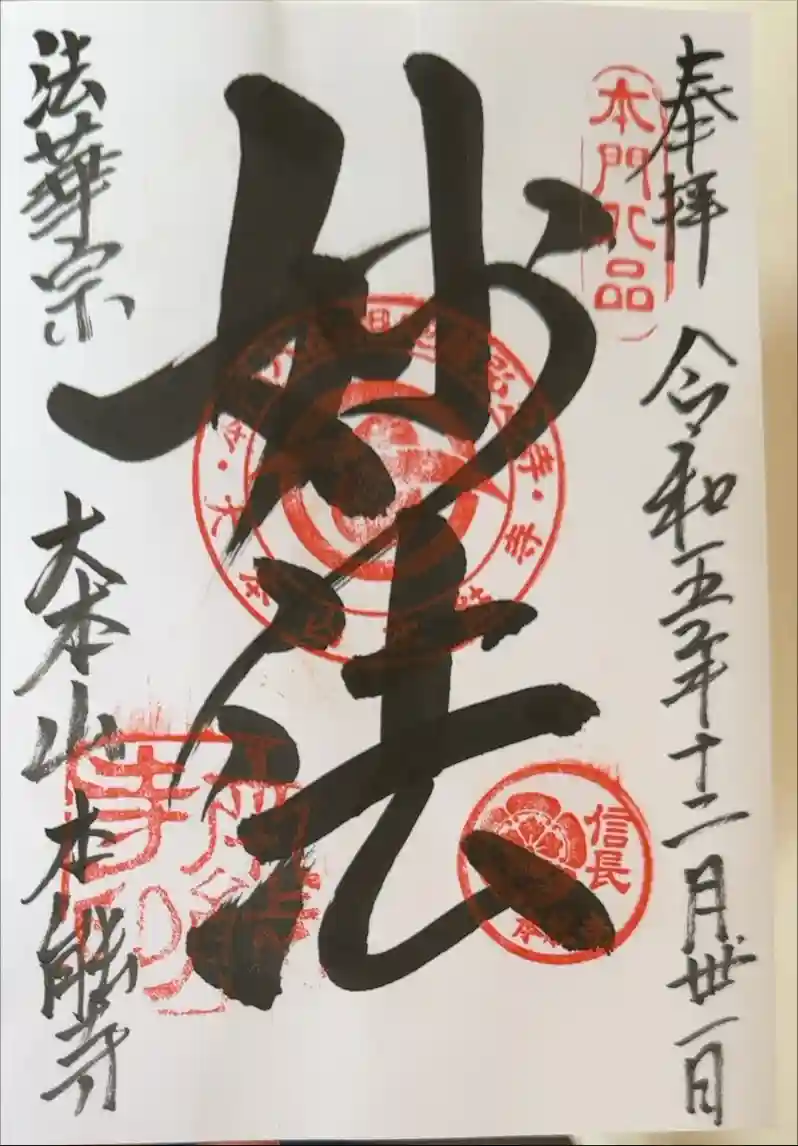 奉拝 令和五年十二月卅一日
本門八品
妙法
信長
法華宗 大本山 本能寺